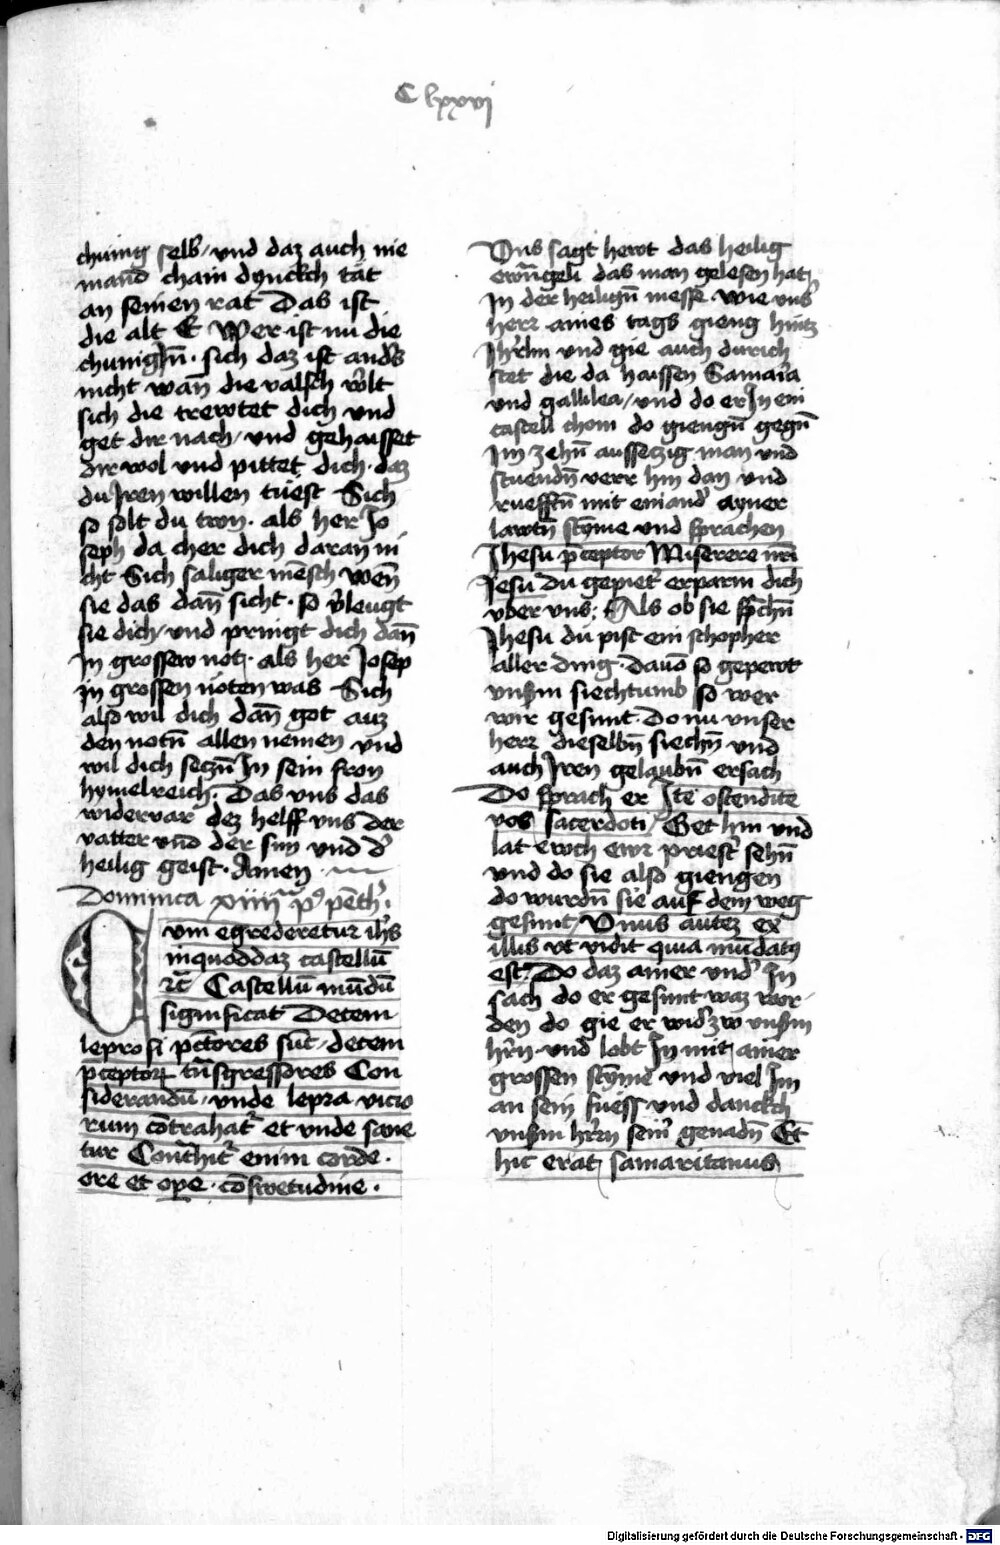 Clxxvi
chunig selb / und daz auch nie
mand̄ chain dynckch tät
an seinen rat Das ist
die alt E Wer ist nu die
chunigīn · sich daz ist anders
nicht wan̄ die valsch w̓lt
sich die trewtet dich und
get dir nach / und gehaisset
dir wol und pittet dich · daz
du Iren willen tüest Sich
so solt du twn · als her Jo
seph da cher dich daran ni
cht Sich saliger mēsch wen̄
sie das dan̄ sicht · so v̓leugt
sie dich / und pringt dich dan̄
In grossew not · als her Josep
In grossen nöten was Sich
also wil dich dan̄ got auz
den notn̄ allen nemen und
wil dich seczn̄ In sein fron
hymelreich · Das uns das
widervar dez helff uns der
vatter und̄ der sun und d̓
heilig geist · Amen ·
Dominica xiiii p̓ pēth̓
Cum egrederetur ih̄s
inquoddaz castellū
rc̄ Castellū mūdū
significat Decem
leprosi pc̄tores sūt / decem
p̄ceptorꝝ tn̄sgressores Con
siderandū / unde lepra vicio
rum cōtrahat̓ et unde sane
tur Cont̄hit̓ enim corde ·
ore et oꝑe · cōswetudine ·
Uns sagt hewt das heilig
ewn̄geli das man gelesen hat
In der heilign̄ messe · wie uns̓
herr aines tags gieng hintz
Ihr̄lm und gie auch durich
stet die da haissen Samar̄ia
und gallilea / und do er In ein
castell chom do giengn̄ gegn̄
Im zehn̄ aussetzig man und
stuendn̄ verr hin dan und
ruefftn̄ mit einand̓ ayner
lawtn̄ stȳme und sprachen
Jhesu p̄ceptor Miserere nr̄i
Jesu du gepiet̓ erparm dich
uber uns ; Als ob sie sp̄chn̄
Jhesu du pist ein schopher
aller ding · davō so gepewt
unsm̄ siechtumb so wer
wir gesunt · Do nu unser
herr dieselbn̄ siechn̄ und
auch Iren gelaubn̄ ersach
Do sprach er Ite ostendite
vos sacerdoti / Get hin und
lat ewch ewr priest̓ sehn̄
und do sie also giengen
do wurdn̄ sie auf dem weg
gesunt / Unus autez ex
illis ut vidit quia mūdatꝰ
est Do daz ainer und̓ In
sach do er gesunt waz wor-
den do gie er wid̓ zw unsm̄
hr̄n und lobt In mit ainer
grossen stȳme und viel Im
an sein fuess und danckch
unsm̄ hr̄rn sein̓ genadn̄ Et
hic erat samaritanus
Digitalisierung gefördert durch die Deutsche Forschungsgemeinschaft - DFG